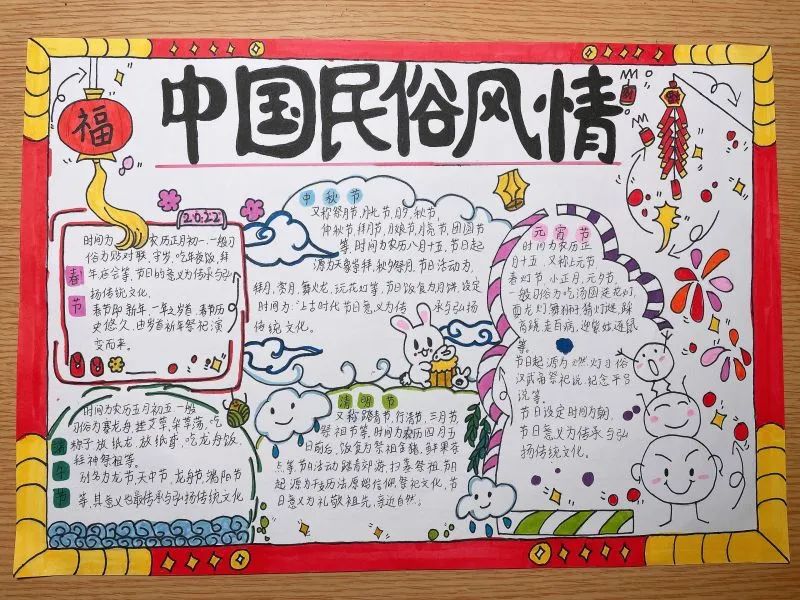 中国民俗风情
福
2022
春节
时间为农历正月初一.一般习
俗为贴对联,守岁,吃年夜饭,拜
年庙会等,节日的意义为传承与弘
扬传统文化.
春节即新年,一年之岁首,春节历
史悠久,由岁首祈年祭祀演
变而来.
中秋节
又称祭月节,月光节,月夕,秋节,
仲秋节,拜月节,月娘节,月亮节,团圆节
等,时间为农历八月十五,节日起
源为天象崇拜,秋夕祭月.节日活动为,
拜月,赏月,舞火龙,玩花灯等,节日饮食为月饼,设定
时间为:上古时代 节日意义为传承与弘扬
传统文化.
元宵节
时间为农历正
月十五,又称上元节
春灯节,小正月,元夕节,
一般习俗为吃汤圆 逛花灯,
耍龙灯 舞狮子 猜灯谜,踩
高跷,走百病,迎紫姑
等.
节日起源为燃灯习俗
汉武帝祭祀说,纪念平吕
说等.
节日设定时间为
节日意义为传承与弘
扬传统文化.
端午节
时间为农历五月初五 一般
习俗为赛龙舟,挂艾草
粽子 放纸龙,放纸鸢,吃龙舟饭,
拜神祭祖等.
别名为龙节,天中节,龙舟节,端阳节
等,其意义也是传承与弘扬传统文化
清明节
又称踏青节,行清节,三月节,
祭祖节等,时间为农历四月五
日前后,饮食为
点等,节日活动 踏青郊游,扫墓祭祖 节日
起源为干支历法 祭祀文化,节
日意义为礼敬祖先,亲近自然.